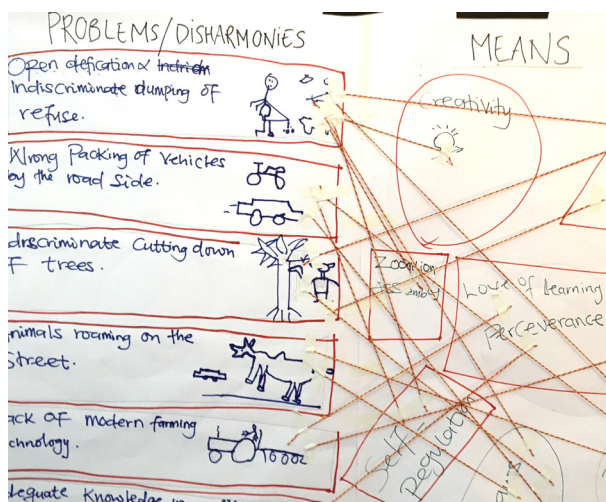 PROBLEMS/DISHARMONIES
Open defication &
Indiscriminate dumping of
refuse.
Wrong Packing of vehicles
by the road side.
discriminate Cutting down
F trees.
nimals roaming on the
Street.
ack OF modern farming
chnology.
dequate Knowledge
MEANS
Creativity
Zoomlion
Love of learning
Perceverance
Self-
Regulation